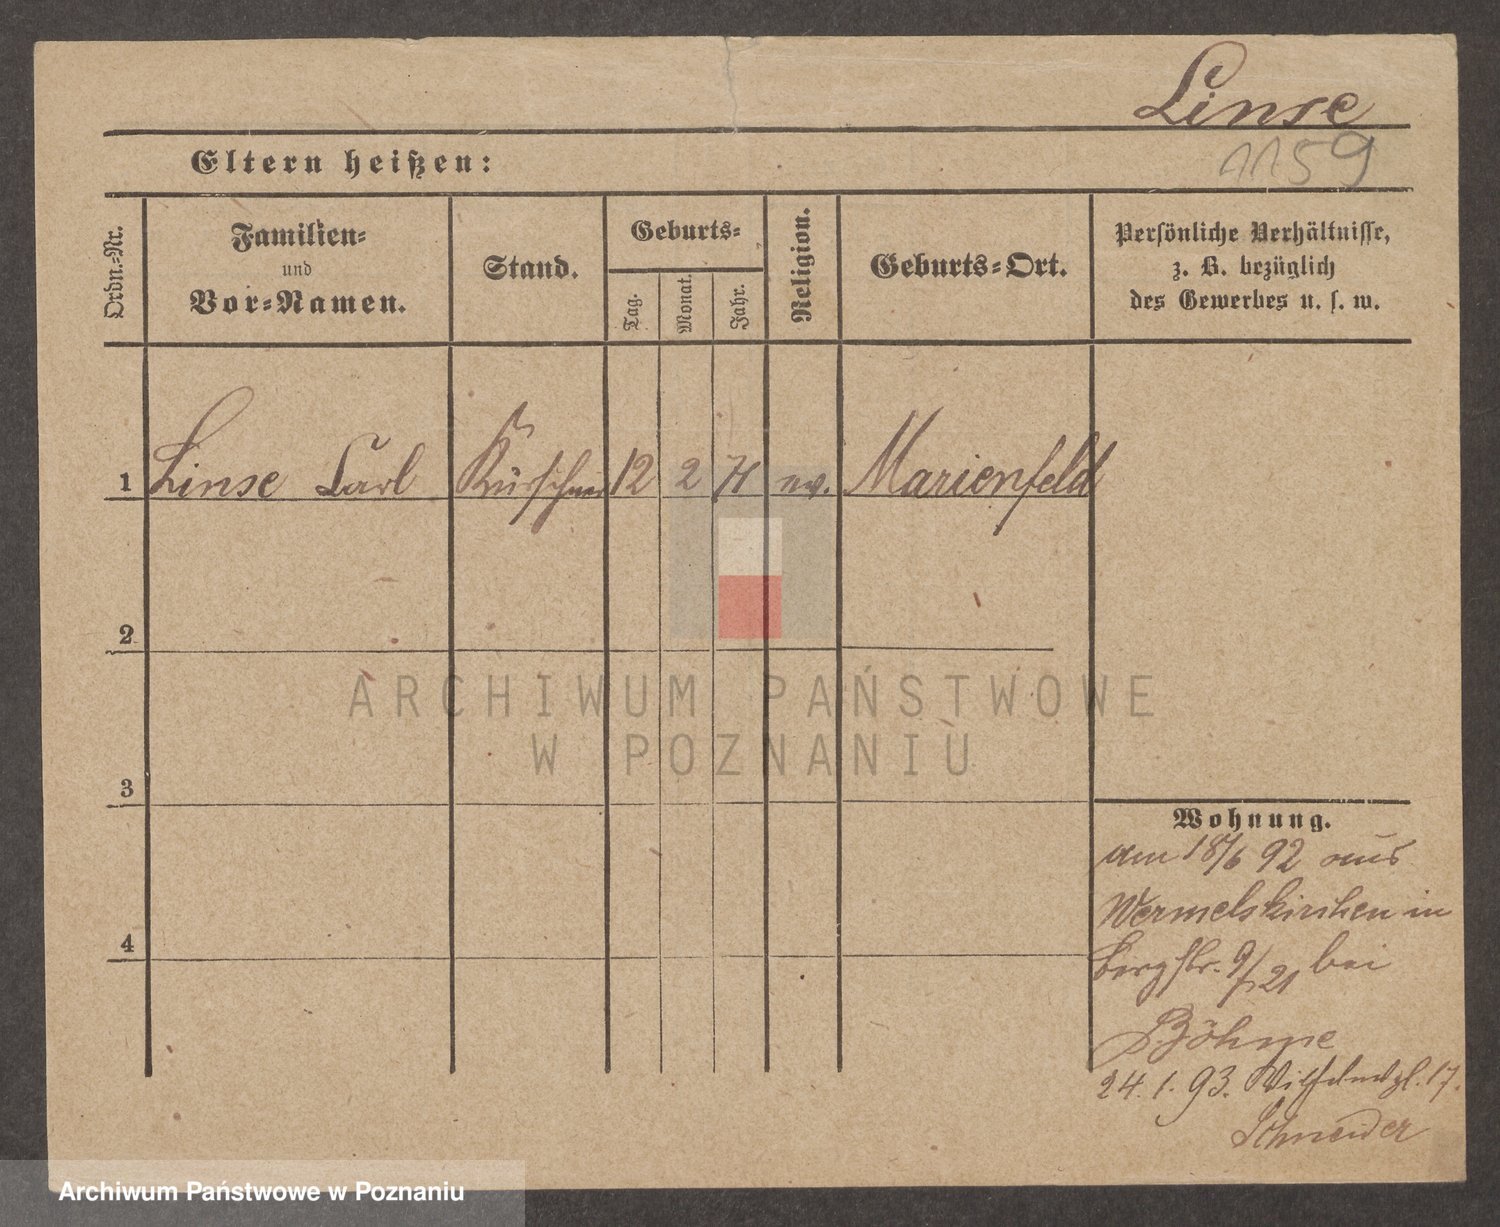 Linse
1159
Eltern heißen:
Ordn.-Nr.
Familien-
und
Vor-Namen.
Stand.
Geburts-
Tag.
Monat.
Jahr.
Religion.
Geburts-Ort.
Persönliche Verhältnisse,
z. B. bezüglich
des Gewerbes u. s. w.
1 Linse Carl Kürschner 12 2 71 ev. Marienfeld
2
3
4
Wohnung.
am 18/6 92 aus
Wermelskirchen in
Bergstr. 9/21 bei
Böhme
24.1.93. Wilhelmspl. 17.
Schneider
ARCHIWUM PAŃSTWOWE
W POZNANIU
Archiwum Państwowe w Poznaniu